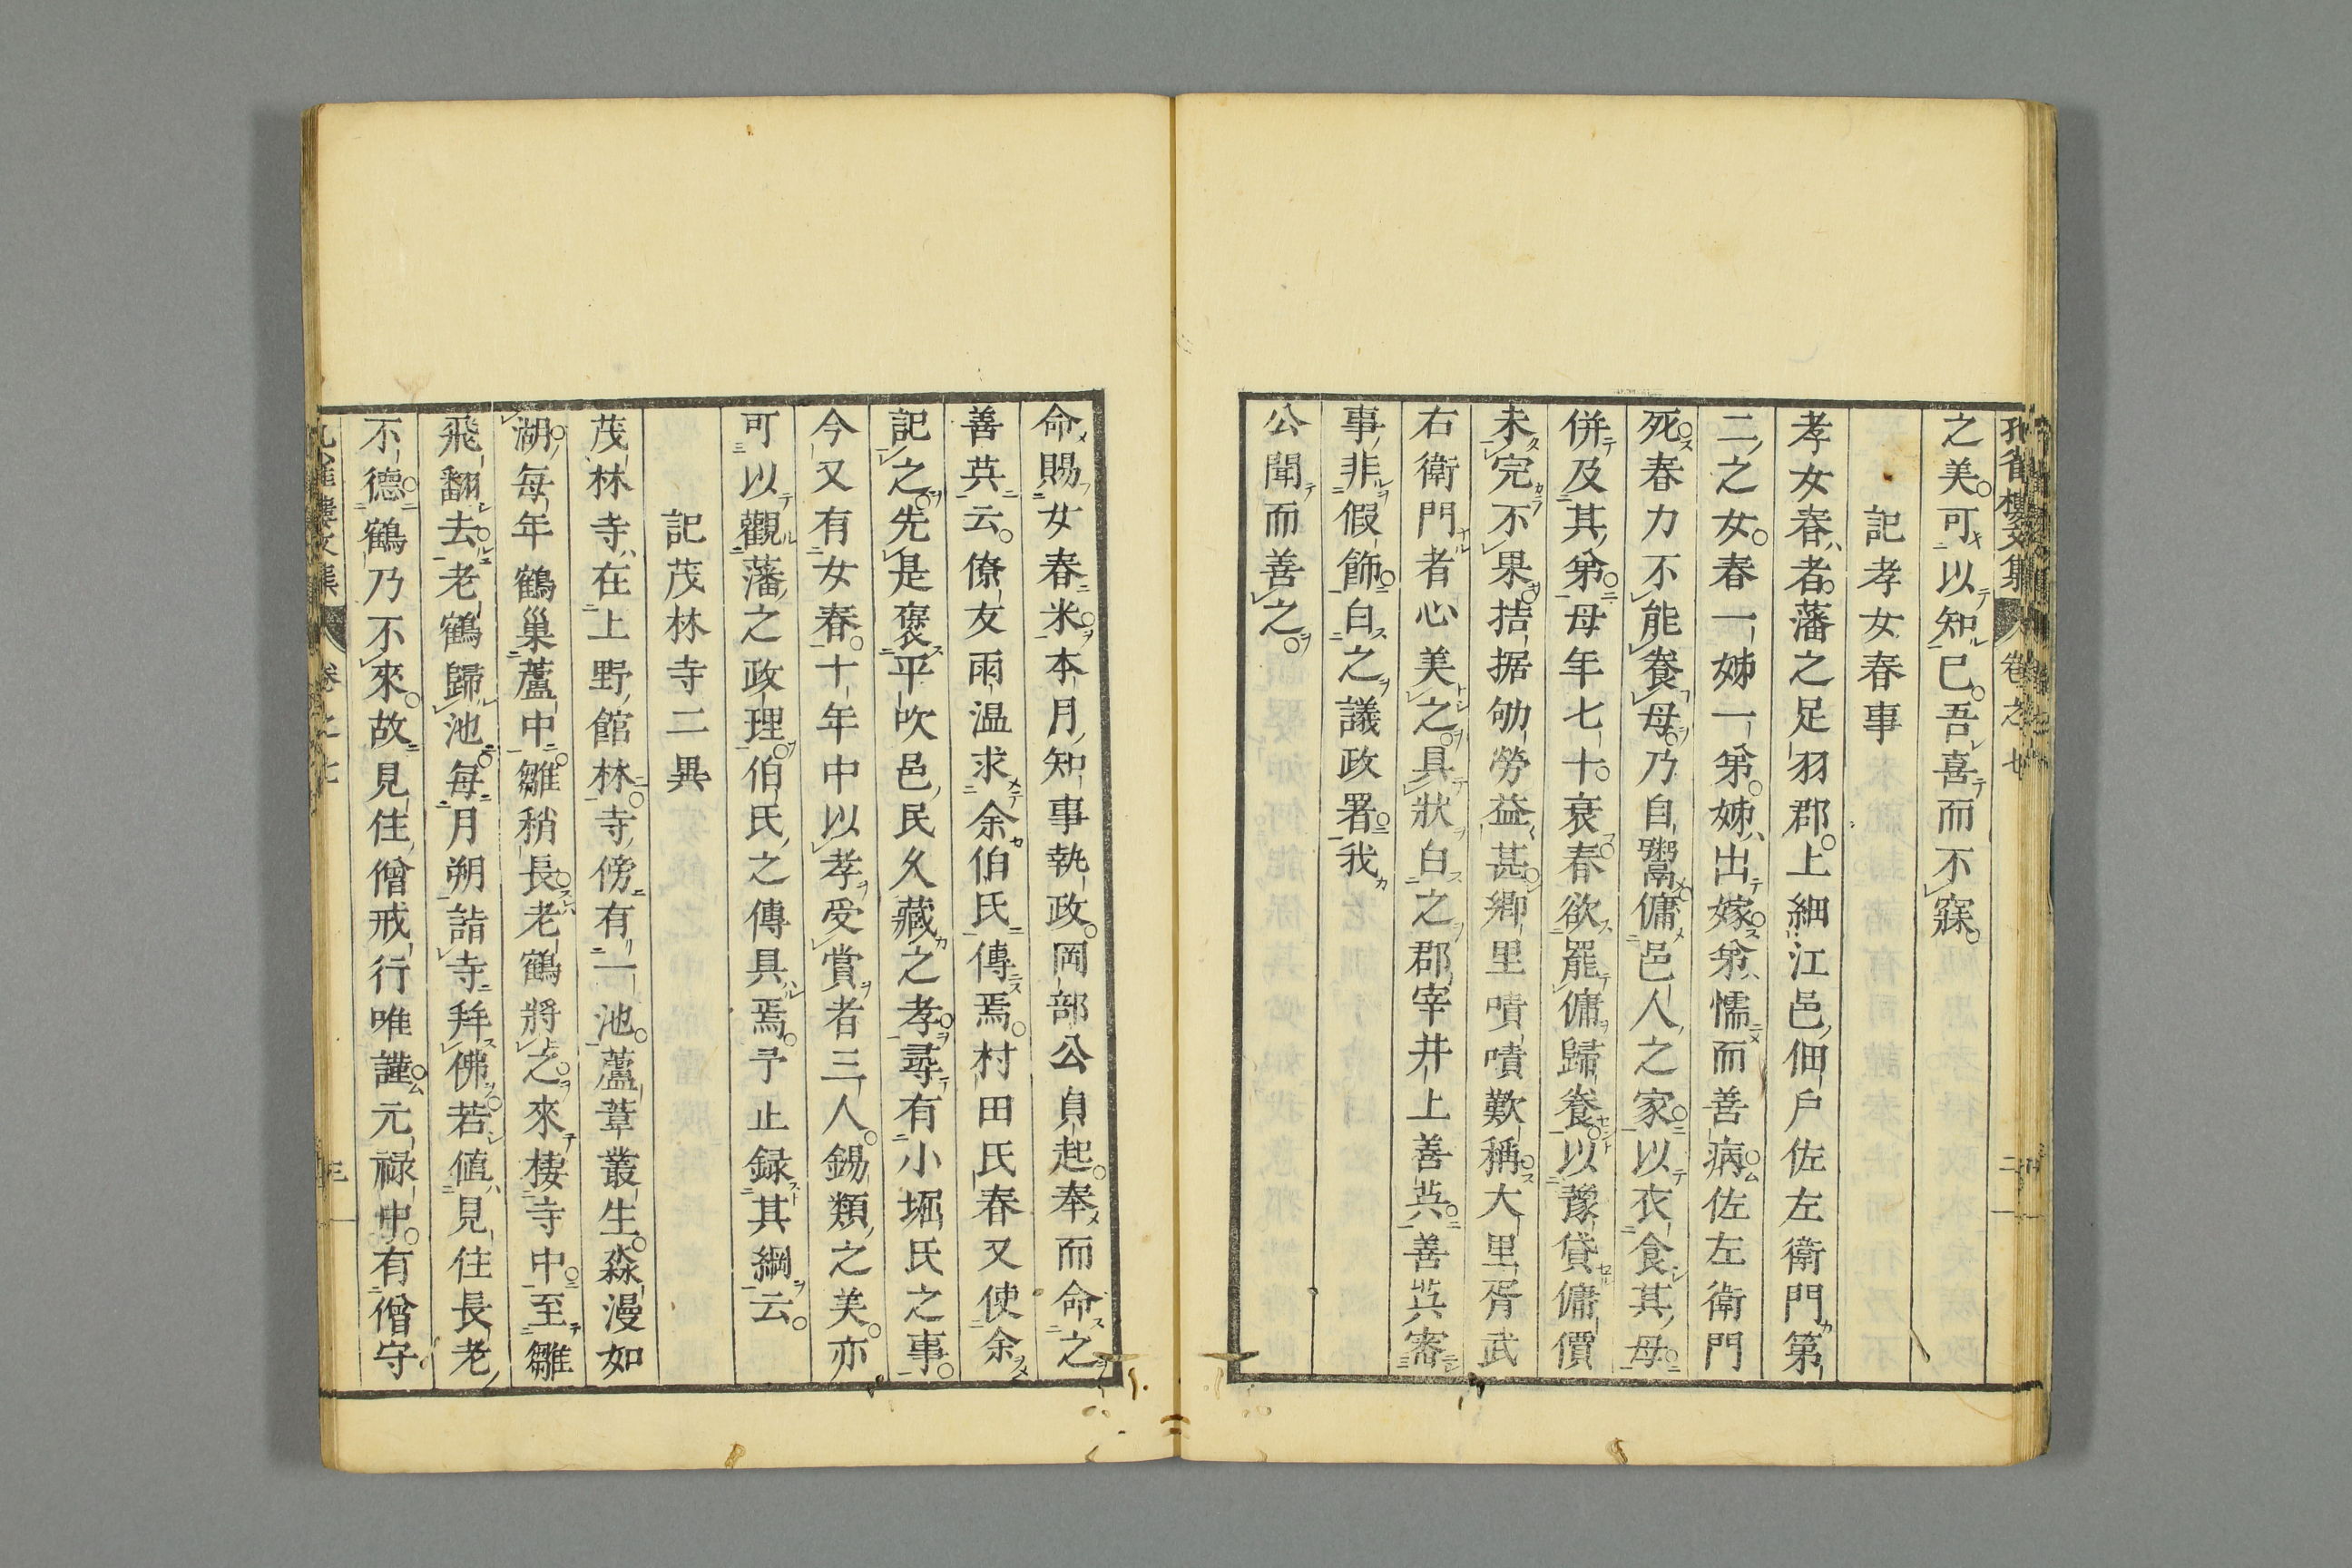 孔雀樓文集 卷之七 二
之美可以知已吾喜而不寐
記孝女春事
孝女春者藩之足羽郡上細江邑佃戶佐左衛門第
二之女春一姊一弟姊出嫁弟懦而善病佐左衛門
死春力不能養母乃自鬻傭邑人之家以衣食其母
併及其弟母年七十衰春欲罷傭歸養以豫貸傭價
未完不果拮据劬勞益甚鄉里嘖嘖歎稱大里胥武
右衛門者心美之具狀白之郡宰井上善兵善兵審
事非假飾白之議政署我
公聞而善之
命賜女春米本月知事執政岡部公貞起奉而命之
善英云僚友雨温求余伯氏傳焉村田氏春又使余
記之先是褒平吹邑民久藏之孝尋有小堀氏之事
今又有女春十年中以孝受賞者三人錫類之美亦
可以觀藩之政理伯氏之傳具焉予止録其綱云
記茂林寺二異
茂林寺在上野館林寺傍有一池蘆葦叢生淼漫如
湖每年鶴巢蘆中雛稍長老鶴將之來棲寺中至雛
飛翻去老鶴歸池每月朔詣寺拜佛若値見住長老
不德鶴乃不來故見住僧戒行唯謹元禄中有僧守
孔雀樓文集 卷之七 三